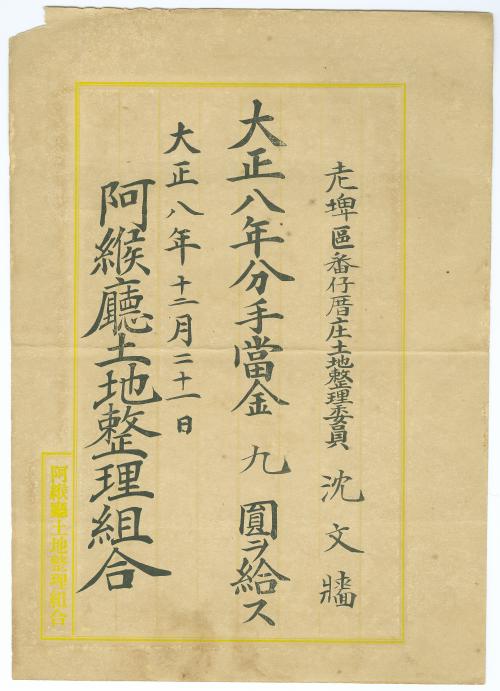 老埤區番仔厝庄土地整理委員 沈文牆
大正八年分手當金 九 圓ヲ給ス
大正八年十二月二十一日
阿緱廳土地整理組合
阿緱廳土地整理組合